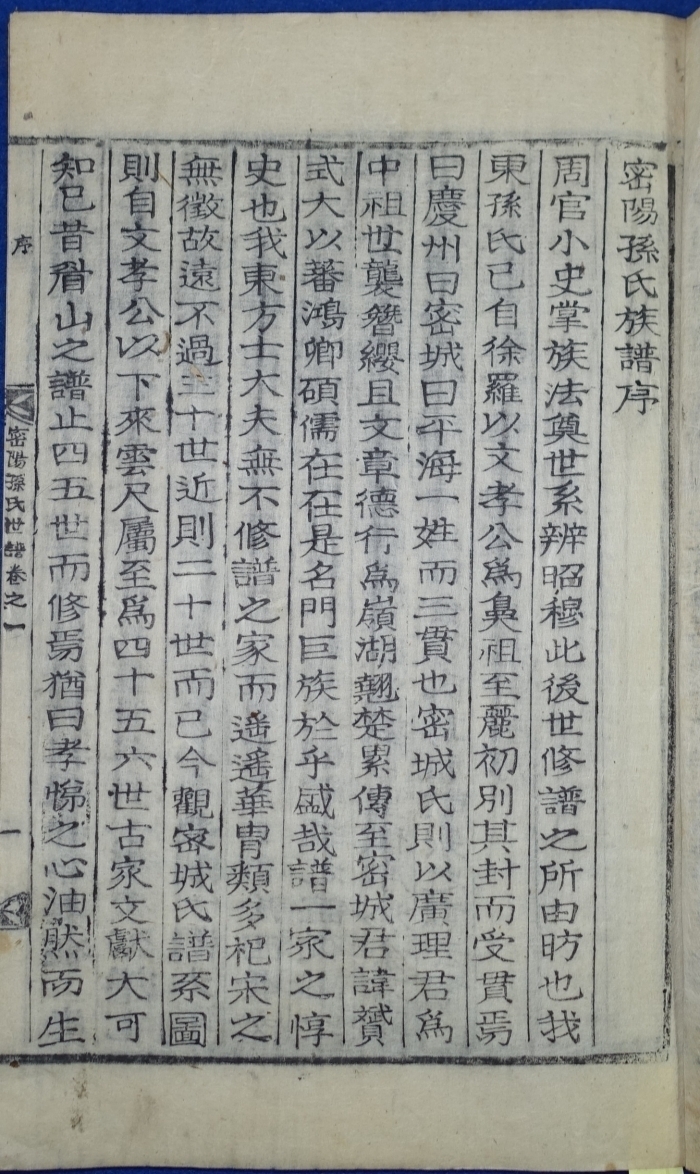 密陽孫氏族譜序
周官小史掌族法奠世系辨昭穆此後世修譜之所由昉也我
東孫氏已自徐羅以文孝公爲鼻祖至麗初別其封而受貫焉
曰慶州曰密城曰平海一姓而三貫也密城氏則以廣理君爲
中祖世襲簪纓且文章德行爲嶺湖翹楚累傳至密城君諱贇
式大以蕃鴻卿碩儒在在是名門巨族於乎盛哉譜一家之惇
史也我東方士大夫無不修譜之家而遙遙華胄類多杞宋之
無徵故遠不過三十世近則二十世而已今觀密城氏譜系圖
則自文孝公以下來雲尺屬至爲四十五六世古家文獻大可
知已昔眉山之譜止四五世而修焉猶曰孝悌之心油然而生
序
密陽孫氏世譜卷之一
一